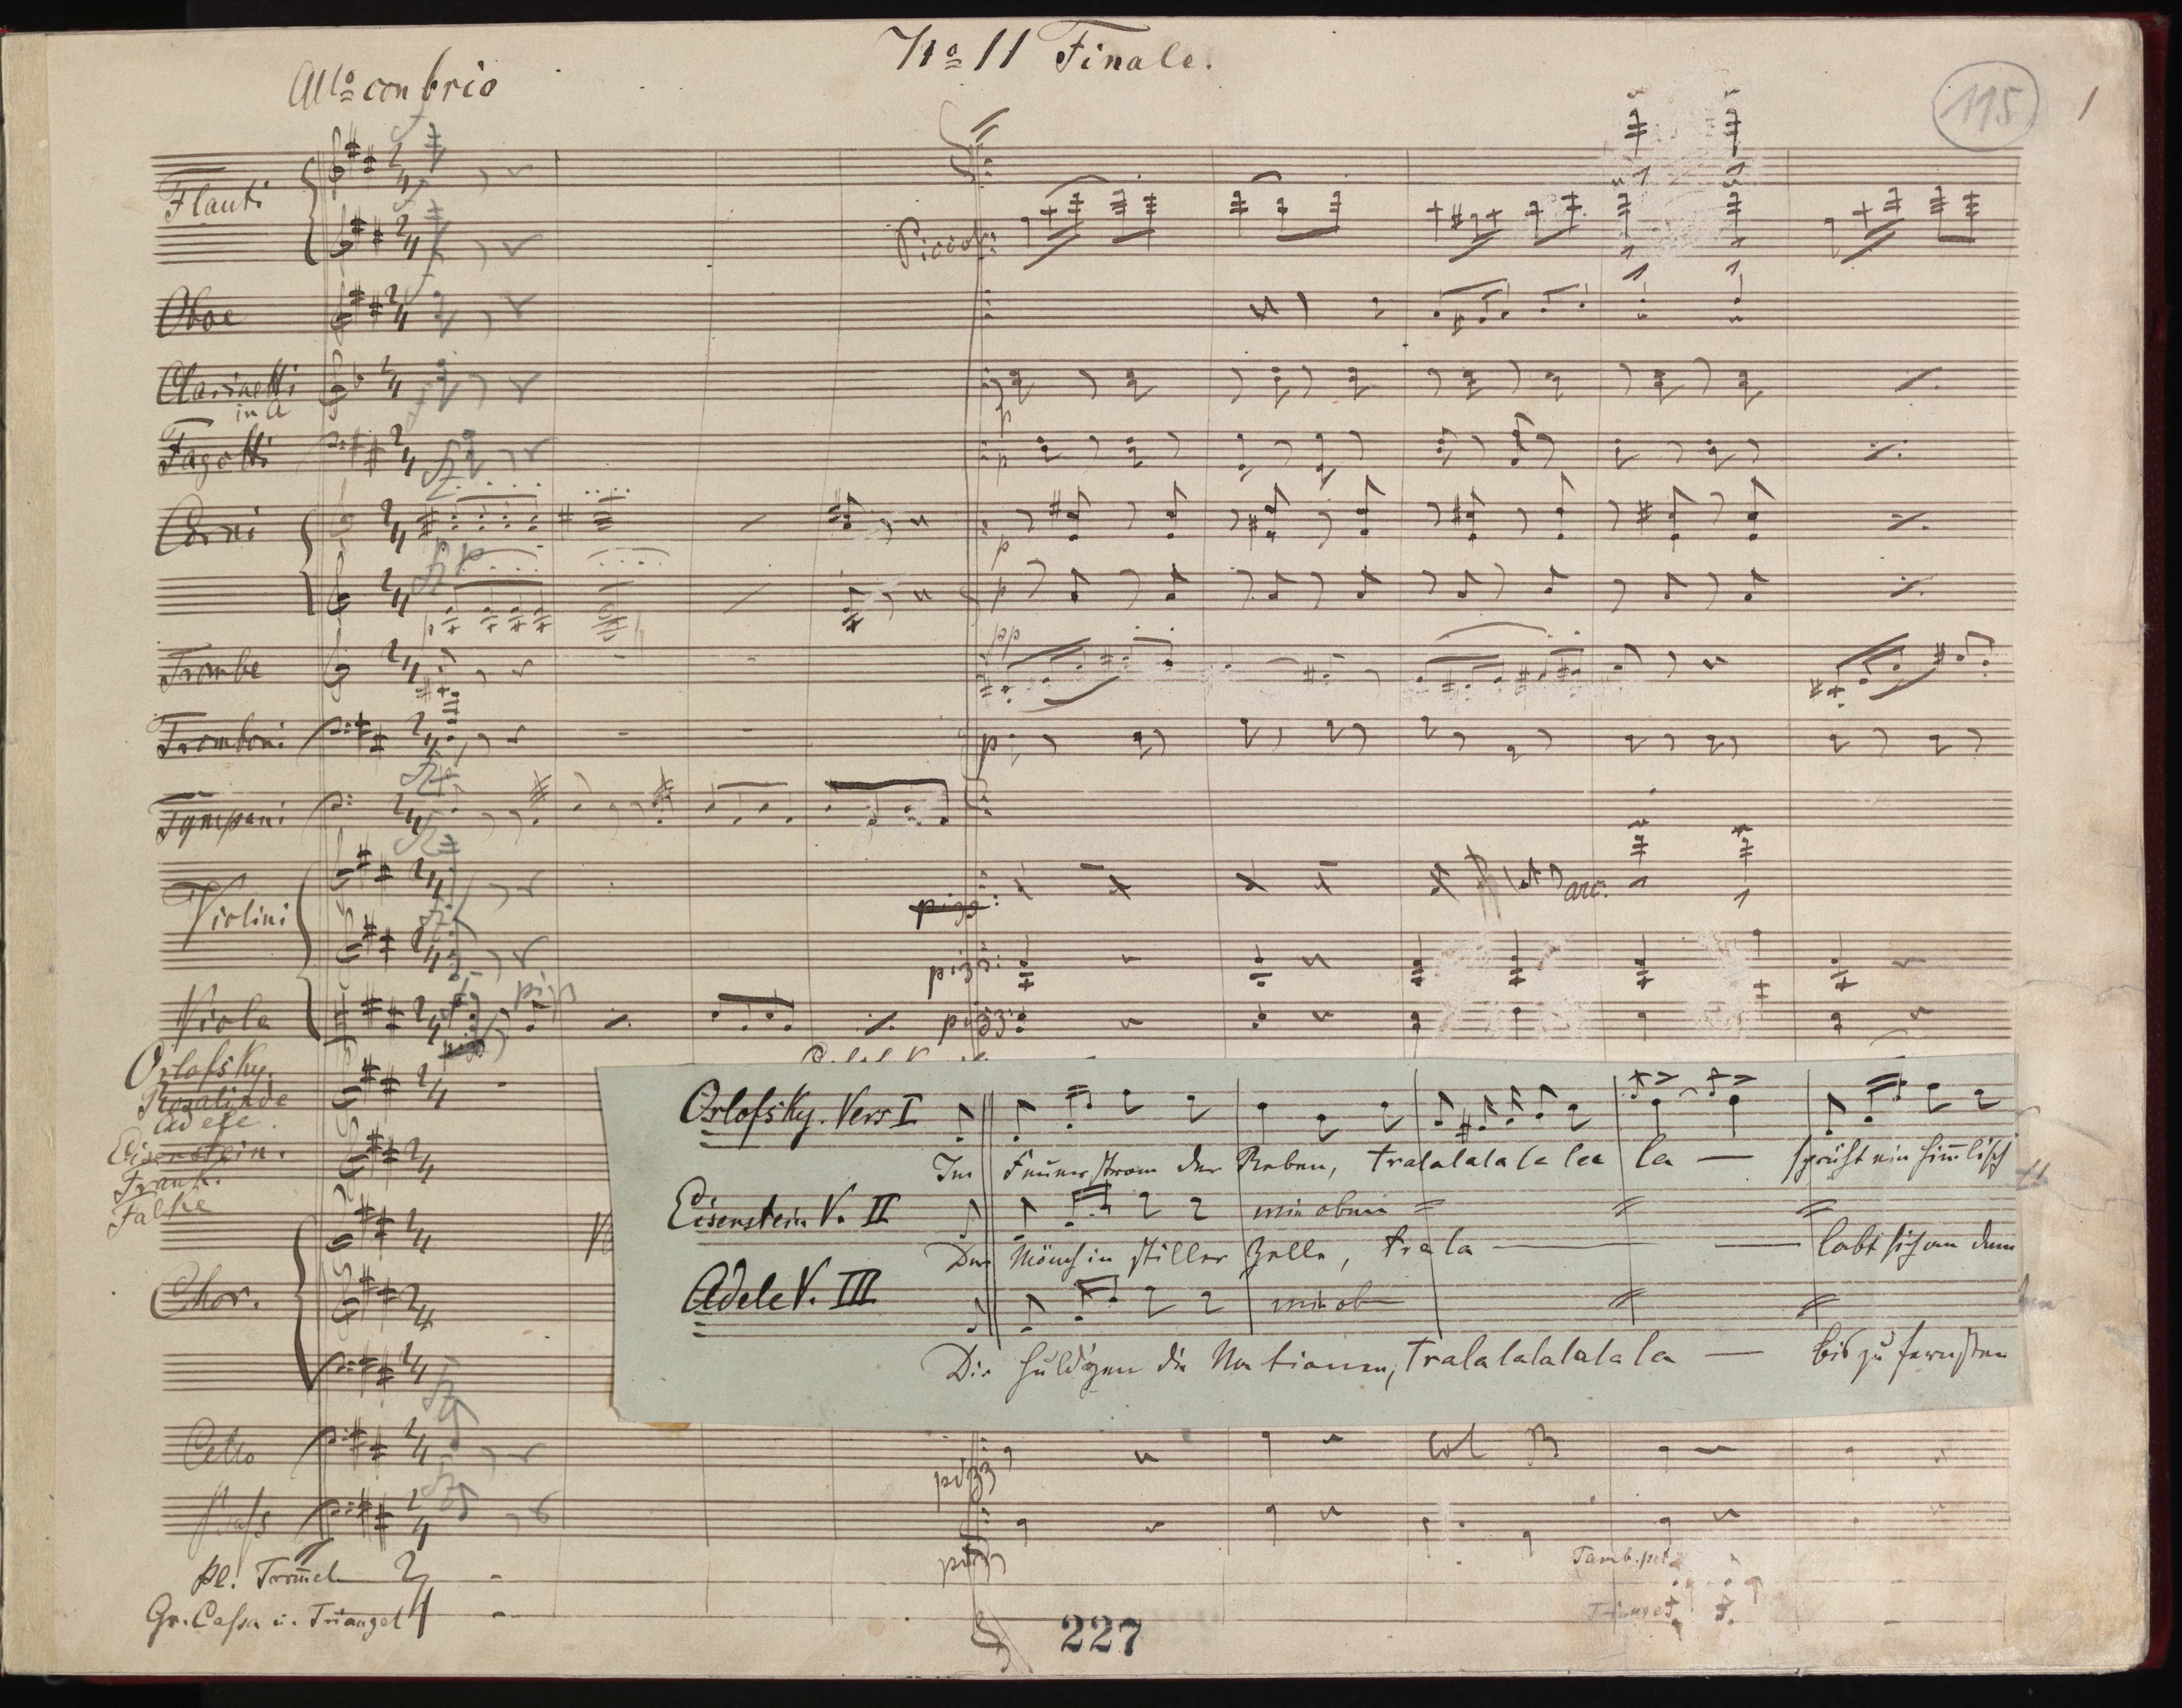 No 11 Finale.
Allo con brio
115
1
Flauti
Piccolo
Oboe
Clarinetti
in A
p
Fagotti
p
Corni
fp
p
p
p
Trombe
pp
Tromboni
p
Tympani
Violini
pizz:
arc:
pizz:
Viola
pizz
pizz:
Orlofsky.
Rosalinde
Adele.
Eisenstein.
Frank.
Falke
Chor.
Orlofsky. Vers I
Im Feuerstrom der Reben, tralalalalalala la — sprüht ein him̅lisch
Eisenstein V. II
wie oben
Der Mönch in stiller Zelle, trala — labt sich an dem
Adele V. III
wie ob
Dir huldigen die Nationen, Tralalalalalala — bis zu fernsten
Cello
pizz
Col B
Bass
pizz
kl. Trom̅el
Tamb. pet
Gr. Cassa u. Triangel
Triangel
227